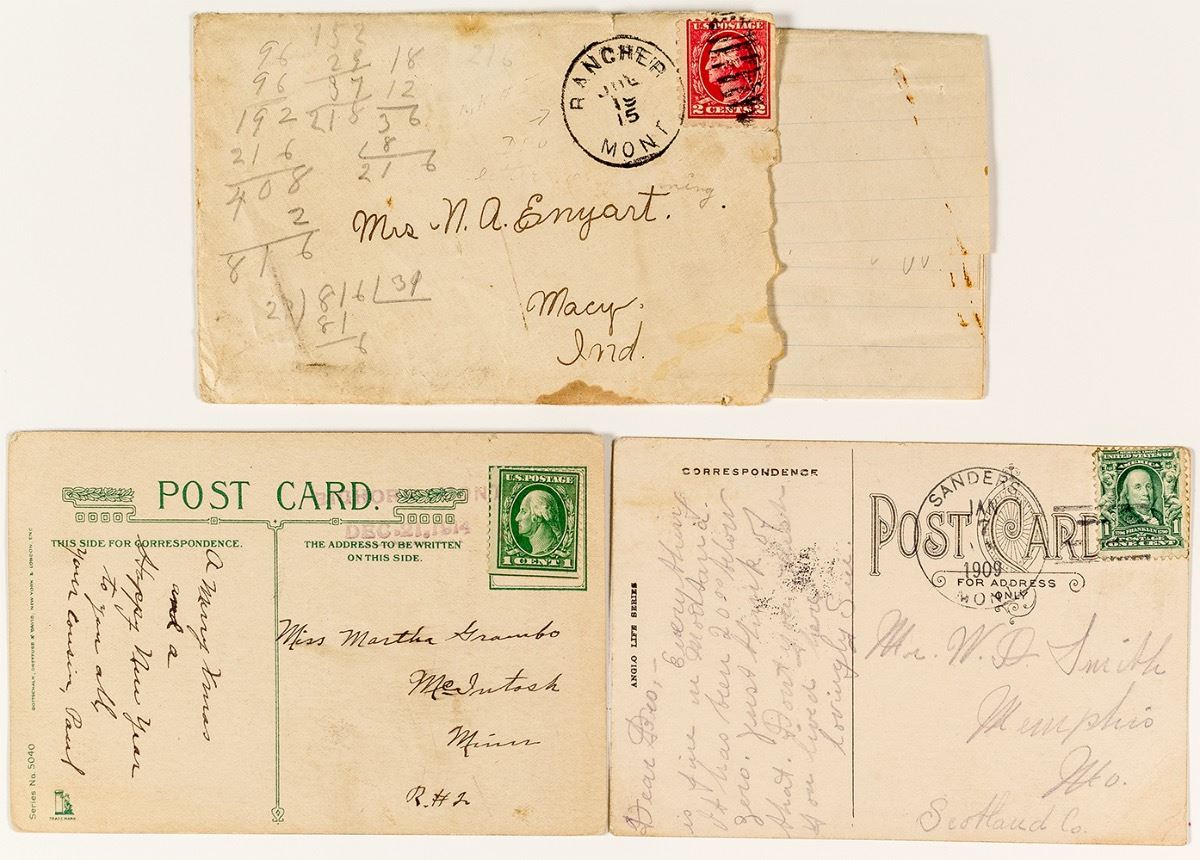 96
96
192
216
408
2
816
152
29
37
218
18
12
36
18
216
216
27)816(31
81
6
RANCHER
JUL
18
15
MONT
U.S. POSTAGE
2 CENTS 2
Mrs N. A. Enyart.
Macy.
Ind.
POST CARD.
DEC. 21, 1914
U.S. POSTAGE
1 CENT 1
THIS SIDE FOR CORRESPONDENCE.
THE ADDRESS TO BE WRITTEN
ON THIS SIDE.
A Merry Xmas
and a
Happy New Year
to you all,
Your cousin, Paul
Miss Martha Grambo
McIntosh
Minn
R.#2
Series No. 5040
TRADE MARK
CORRESPONDENCE
ANGLO LIFE SERIES
Dear Bro,-
is fine in Montana.
It has been 20 below
zero. Just think of
that. Don't you
you lived here
Lovingly
POST CARD
FOR ADDRESS
ONLY
SANDERS
JAN
1909
MONT
UNITED STATES OF
AMERICA
FRANKLIN
POSTAGE
ONE CENT
Mr. W. D. Smith
Memphis
Mo.
Scotland Co.